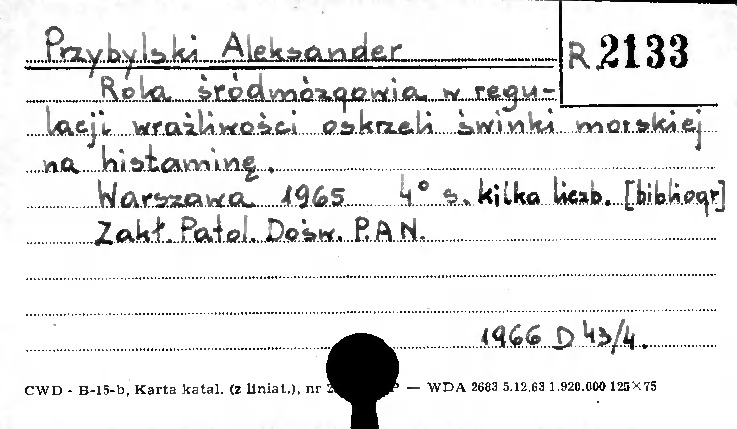 Przybylski Aleksander R.2133
Rola śródmózgowia w regu-
lacji wrażliwości oskrzeli świnki morskiej
na histaminę.
Warszawa 1965 4° s. kilka liczb. [bibliogr]
Zakł. Patol. Dośw. P.A N.
1966 D 43/4.
CWD - B-15-b, Karta katal. (z liniat.), nr — WDA 2683 5.12.63 1.920.000 125×75